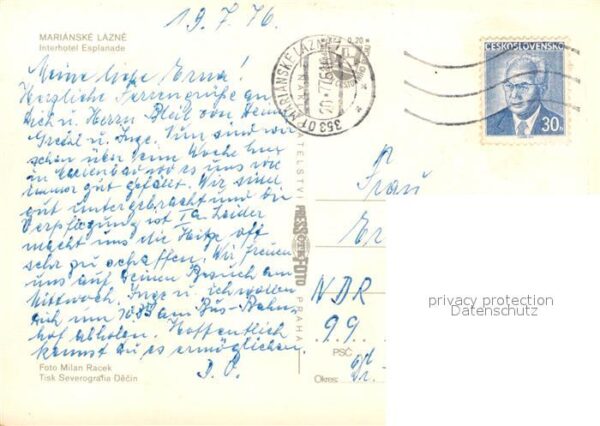 19.7.76.
MARIÁNSKÉ LÁZNĚ
Interhotel Esplanade
Meine liebe Erna!
Herzliche Feriengrüße an
Dich u. Herrn Bleil von Deiner
Gretel u. Inge. Nun sind wir
schon über eine Woche hier
in Marienbad wo es uns wie
immer gut gefällt. Wir sind
gut untergebracht und die
Verpflegung ist Ia. Leider
macht uns die Hitze oft
sehr zu schaffen. Wir freuen
uns auf Deinen Besuch am
Mittwoch. Inge u. ich wollen
Dich um 10.85 am Bus-Bahn-
hof abholen. Hoffentlich
kannst du es ermöglichen.
D. O.
Foto Milan Racek
Tisk Severografia Děčín
353 01 MARIÁNSKÉ LÁZNĚ 1
20.-7.76
0,20
ČESKOSLOVENSKO
30h
PRESSFOTO
PRAHA
Frau
Er
NDR
99.
PSČ
Okres:
privacy protection
Datenschutz